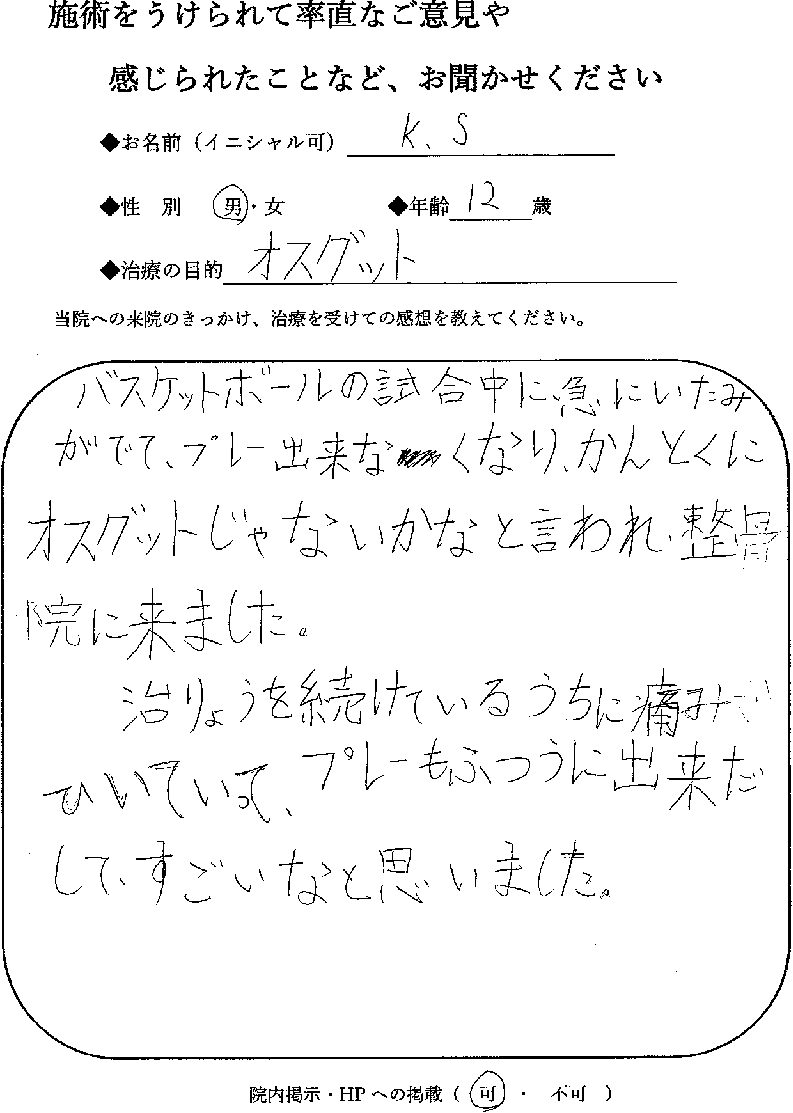 施術をうけられて率直なご意見や
感じられたことなど、お聞かせください
◆お名前（イニシャル可） K.S
◆性 別 男・女 ◆年齢 12 歳
◆治療の目的 オスグット
当院への来院のきっかけ、治療を受けての感想を教えてください。
バスケットボールの試合中に急にいたみ
がでて、プレー出来なくなり、かんとくに
オスグットじゃないかなと言われ、整骨
院に来ました。
治りょうを続けているうちに痛みが
ひいていって、プレーもふつうに出来だ
して、すごいなと思いました。
院内掲示・HPへの掲載（ 可 ・ 不可 ）